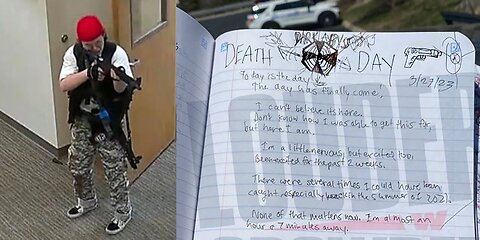 DEATH DAY
3/27/23
Today is the day
The day has finally come!
I can't believe its here.
Don't know how I was able to get this far,
but here I am.
I'm a little nervous, but excited too.
Been excited for the past 2 weeks.
There were several times I could have been
caught, especially back in the summer of 2021.
None of that matters now. I'm almost an
hour & 7 minutes away.